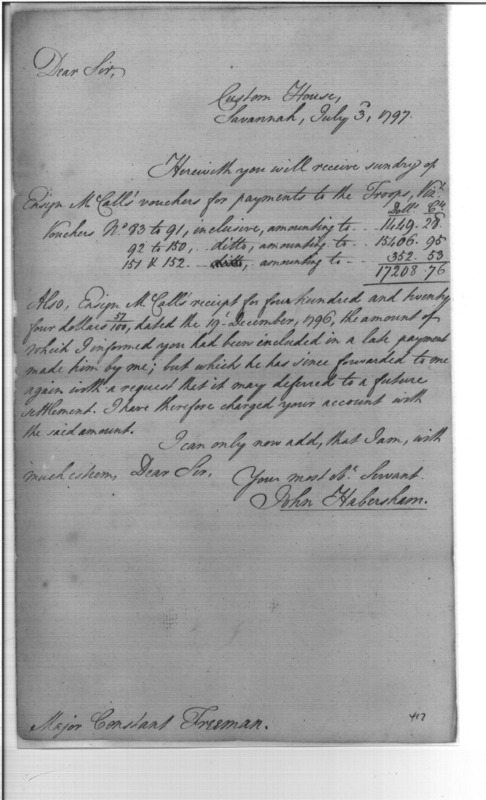 Dear Sir,
Custom House,
Savannah, July 3d, 1797.
Herewith you will receive sundry of
Ensign McCall's vouchers for payments to the Troops, Vizt
Dolls Cts
Vouchers No 83 to 91, inclusive, amounting to - 1449. 28
92 to 150, ditto, amounting to - 15406. 95
151 & 152 ditto, amounting to - 352. 53
17208 76
Also, Ensign McCall's receipt for four hundred and twenty
four dollars 57/100, dated the 19th December, 1796, the amount of
which I informed you had been included in a late payment
made him by me; but which he has since forwarded to me
again with a request that it may deferred to a future
settlement. I have therefore charged your account with
the said amount.
I can only now add, that I am, with
much esteem, Dear Sir,
Your most obt Servant
John Habersham.
Major Constant Freeman.
417